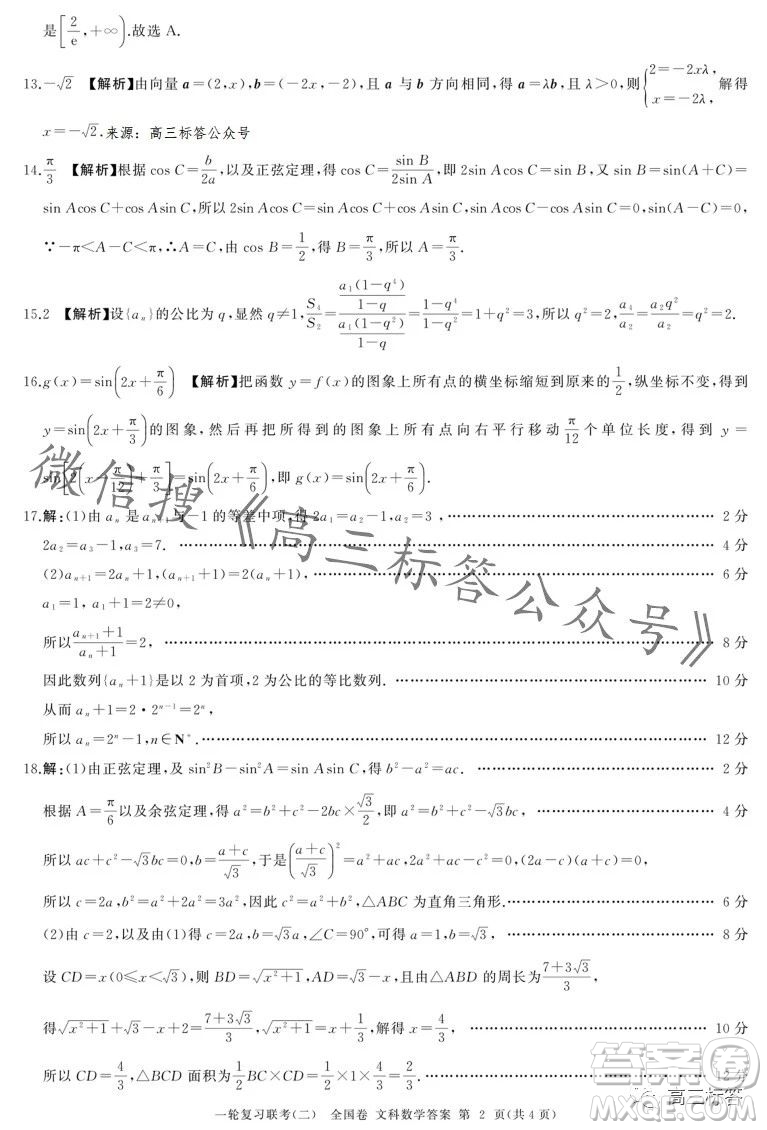 是[2/e,+∞).故选 A.
13.-√2 【解析】由向量 a=(2,x),b=(-2x,-2),且 a 与 b 方向相同,得 a=λb,且 λ>0,则{2=-2xλ, x=-2λ, 解得
x=-√2.来源：高三标答公众号
14.π/3 【解析】根据 cos C=b/2a,以及正弦定理,得 cos C=sin B/2sin A,即 2sin Acos C=sin B,又 sin B=sin(A+C)=
sin Acos C+cos Asin C,所以 2sin Acos C=sin Acos C+cos Asin C,sin Acos C-cos Asin C=0,sin(A-C)=0,
∵-π<A-C<π,∴A=C,由 cos B=1/2,得 B=π/3,所以 A=π/3.
15.2 【解析】设{aₙ}的公比为 q,显然 q≠1,S₄/S₂=(a₁(1-q⁴)/(1-q))/(a₁(1-q²)/(1-q))=(1-q⁴)/(1-q²)=1+q²=3,所以 q²=2,a₄/a₂=a₂q²/a₂=q²=2.
16.g(x)=sin(2x+π/6) 【解析】把函数 y=f(x)的图象上所有点的横坐标缩短到原来的1/2,纵坐标不变,得到
y=sin(2x+π/3)的图象,然后再把所得到的图象上所有点向右平行移动π/12个单位长度,得到 y=
sin[2(x-π/12)+π/3]=sin(2x+π/6),即 g(x)=sin(2x+π/6).
17.解:(1)由 aₙ 是 aₙ₊₁与-1 的等差中项,得 2a₁=a₂-1,a₂=3 ,…… 2 分
2a₂=a₃-1,a₃=7. …… 4 分
(2)aₙ₊₁=2aₙ+1,(aₙ₊₁+1)=2(aₙ+1), …… 6 分
a₁=1,a₁+1=2≠0,
所以(aₙ₊₁+1)/(aₙ+1)=2, …… 8 分
因此数列{aₙ+1}是以 2 为首项,2 为公比的等比数列. …… 10 分
从而 aₙ+1=2·2ⁿ⁻¹=2ⁿ,
所以 aₙ=2ⁿ-1,n∈N*. …… 12 分
18.解:(1)由正弦定理,及 sin²B-sin²A=sin Asin C,得 b²-a²=ac. …… 2 分
根据 A=π/6以及余弦定理,得 a²=b²+c²-2bc×√3/2,即 a²=b²+c²-√3bc, …… 4 分
所以 ac+c²-√3bc=0,b=(a+c)/√3,于是((a+c)/√3)²=a²+ac,(2a-c)(a+c)=0,
所以 c=2a,b²=a²+2a²=3a²,因此 c²=a²+b²,△ABC 为直角三角形. …… 6 分
(2)由 c=2,以及由(1)得 c=2a,b=√3a,∠C=90°,可得 a=1,b=√3, …… 8 分
设 CD=x(0≤x<√3),则 BD=√(x²+1),AD=√3-x,且△ABD 的周长为(7+3√3)/3,
得√(x²+1)+√3-x+2=(7+3√3)/3,√(x²+1)=x+1/3,解得 x=4/3, …… 10 分
所以 CD=4/3,△BCD 面积为1/2BC×CD=1/2×1×4/3=2/3. …… 12 分
一轮复习联考(二) 全国卷 文科数学答案 第 2 页(共 4 页)
微信搜《高三标答公众号》
答案卷
高三标答